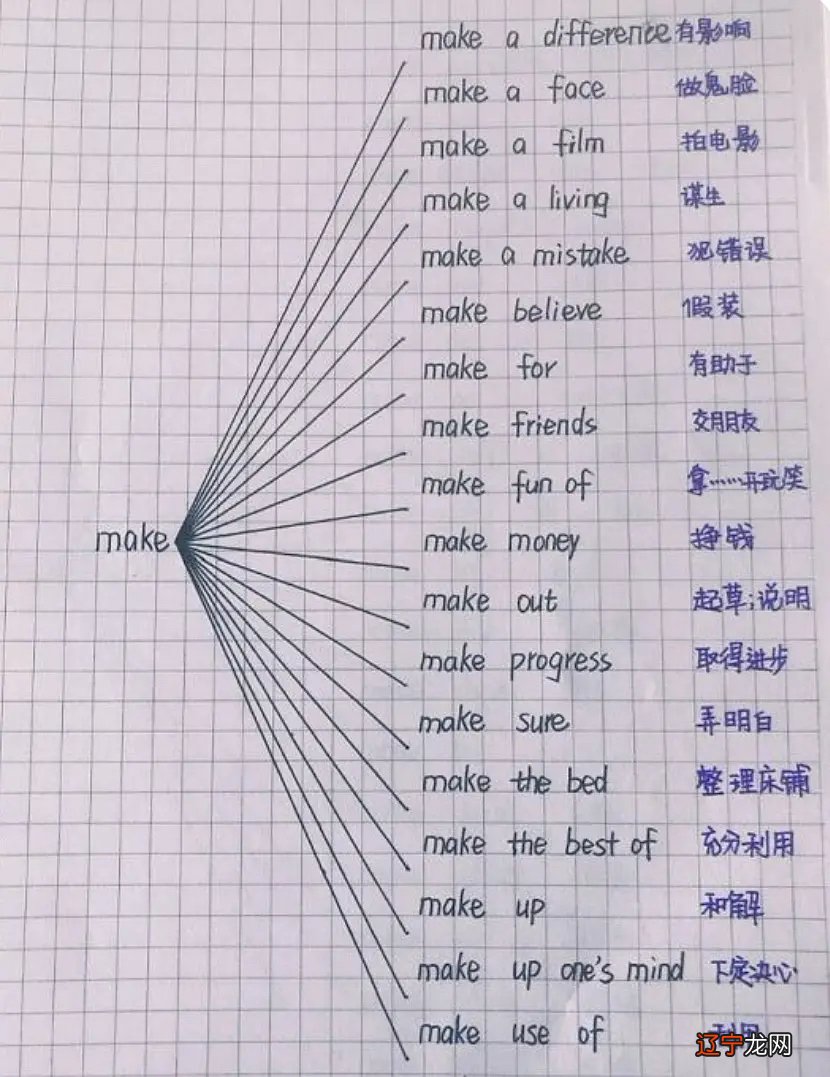 make a difference 有影响
make a face 做鬼脸
make a film 拍电影
make a living 谋生
make a mistake 犯错误
make believe 假装
make for 有助于
make friends 交朋友
make fun of 拿……开玩笑
make
make money 挣钱
make out 起草；说明
make progress 取得进步
make sure 弄明白
make the bed 整理床铺
make the best of 充分利用
make up 和解
make up one's mind 下定决心
make use of 利用
辽宁龙网